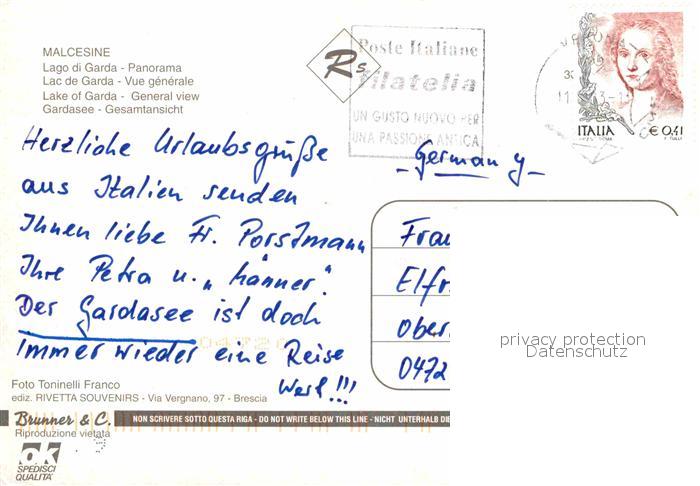 MALCESINE
Lago di Garda - Panorama
Lac de Garda - Vue générale
Lake of Garda - General view
Gardasee - Gesamtansicht
Rs
Poste Italiane
Filatelia
UN GUSTO NUOVO PER
UNA PASSIONE ANTICA
ITALIA
€ 0,41
Herzliche Urlaubsgrüße
aus Italien senden
Ihnen liebe Fr. Porstmann
Ihre Petra u. „Männer".
Der Gardasee ist doch
immer wieder eine Reise
Wert!!!
- Germany -
Frau
Elfr
Ober
0472
privacy protection
Datenschutz
Foto Toninelli Franco
ediz. RIVETTA SOUVENIRS - Via Vergnano, 97 - Brescia
Brunner & C.
NON SCRIVERE SOTTO QUESTA RIGA - DO NOT WRITE BELOW THIS LINE - NICHT UNTERHALB DIE
Riproduzione vietata
ok
SPEDISCI
QUALITA'